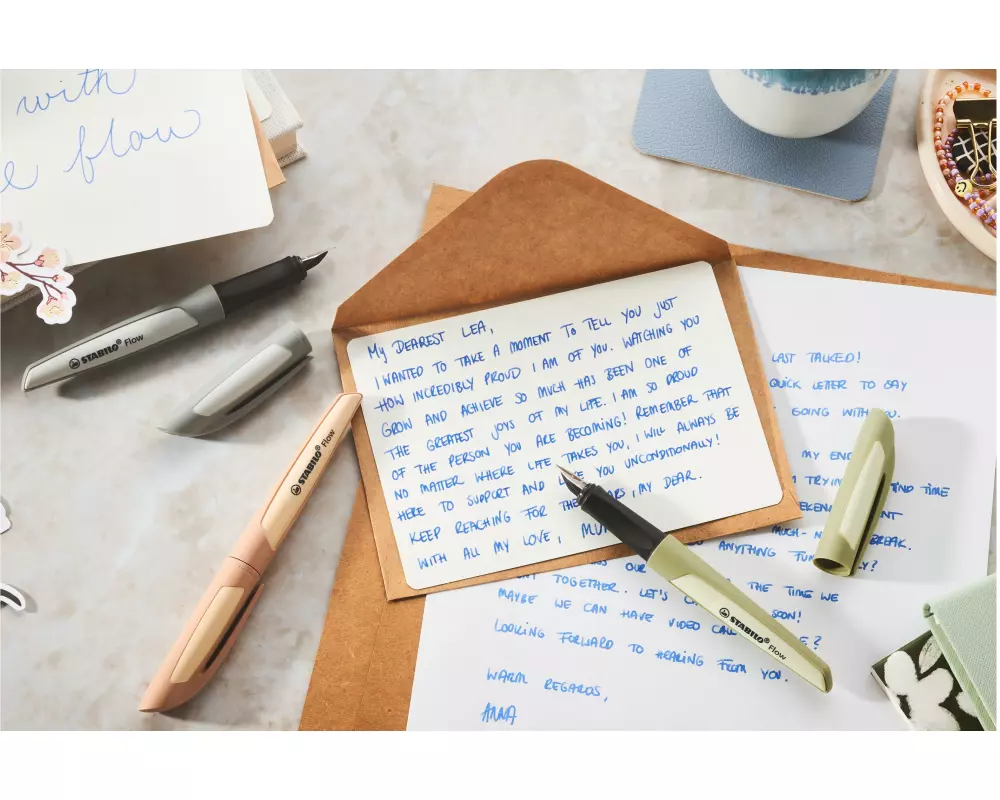 with
e flow
STABILO® Flow
STABILO® Flow
My DEAREST LEA,
I WANTED TO TAKE A MOMENT TO TELL YOU JUST
HOW INCREDIBLY PROUD I AM OF YOU. WATCHING YOU
GROW AND ACHIEVE SO MUCH HAS BEEN ONE OF
THE GREATEST JOYS OF MY LIFE. I AM SO PROUD
OF THE PERSON YOU ARE BECOMING! REMEMBER THAT
NO MATTER WHERE LIFE TAKES YOU, I WILL ALWAYS BE
HERE TO SUPPORT AND YOU UNCONDITIONALLY!
KEEP REACHING FOR , MY DEAR.
WITH ALL MY LOVE,
STABILO® Flow
LAST TALKED!
QUICK LETTER TO SAY
GOING WITH
MY
TIME
MUCH- BREAK.
ANYTHING
OUR
TOGETHER. LET'S THE TIME WE
MAYBE WE CAN HAVE VIDEO SOON!
LOOKING FORWARD TO HEARING FROM YOU.
WARM REGARDS,
ANNA